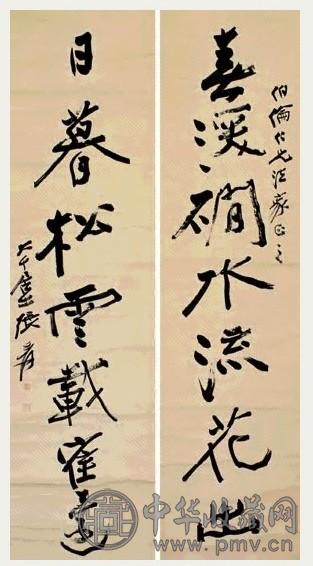 伯倫仁兄法家正之
春深磵水流花出
日暮松雲載寉還
大千居士張爰
中华收藏网
www.pmv.cn